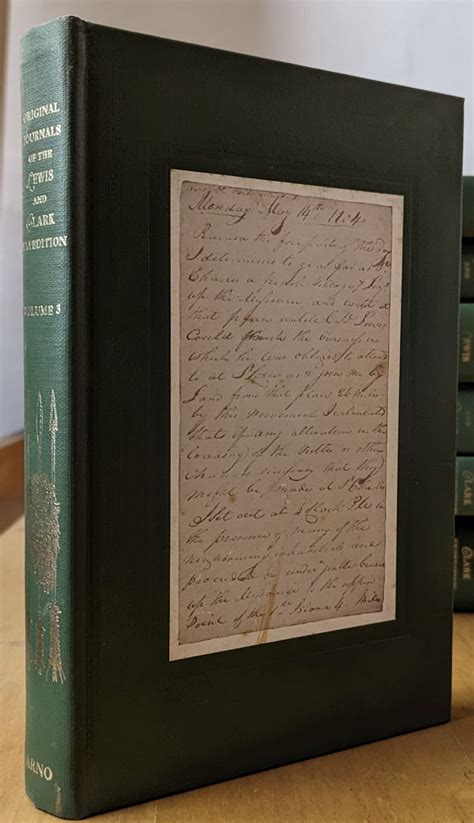 ORIGINAL
JOURNALS
OF THE
LEWIS
AND
CLARK
EXPEDITION
VOLUME 3
ARNO
Monday May 14th 1804
Rained the fore part of the day
I determined to go as far as St
Charles a french Village 7 Leags
up the Missourie, and wait at
that place untill Capt Lewis
Could finish the business
which he was obliged to attend
to at St Louis and join me by
Land from that place 24 miles
by this movement I calculated
that if any alterations in the
loading of the Vestles or other
Changes necessary that they
might be made at St Charles
I Set out at 4 oClock P.M in
the presence of many of the
neighbouring inhabitents and
proceeded on under a jentle brease
up the Missourie to the upper
Point of the 1st Island 4 Miles
CLARK